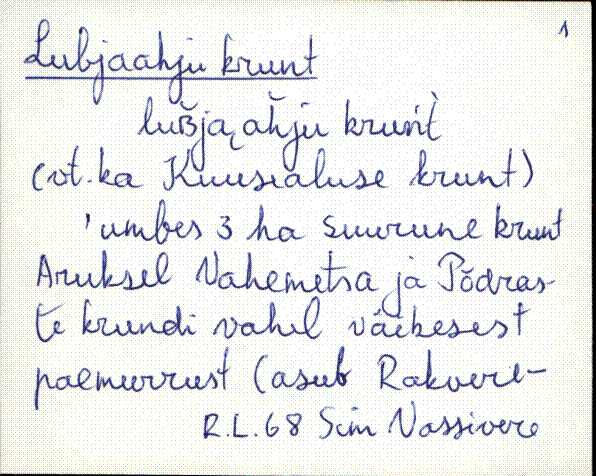 1
Lubjaahju krunt
luʙ̆ją ăh̆ju kruńt̀
(vt. ka Kuusealuse krunt)
'umbes 3 ha suurune krunt
Aruksel Vahemetsa ja Põdras-
te krundi vahel väikesest
paemurrust (asub Rakvere-
R.L.68 Sim Vassivere